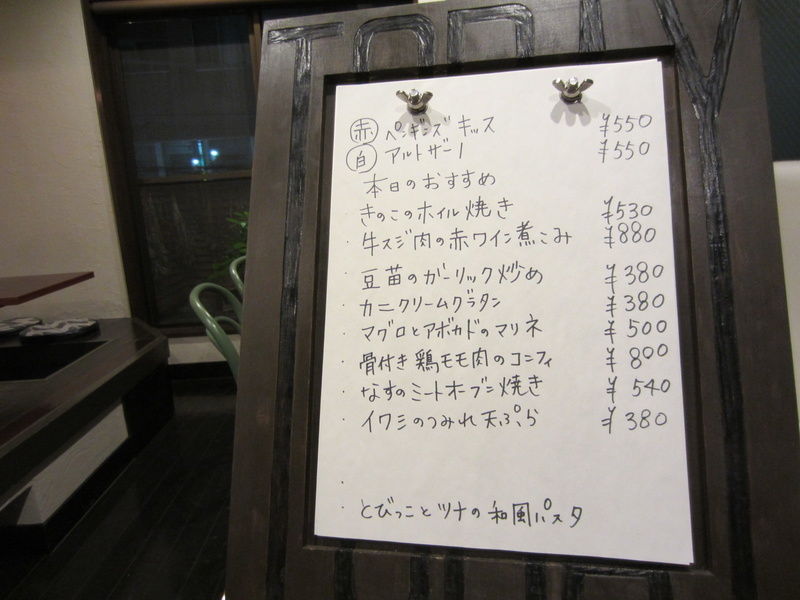 TODAY
赤 ペンギンズ キッス ¥550
白 アルトザーノ ¥550
本日のおすすめ
・きのこのホイル焼き ¥530
・牛スジ肉の赤ワイン煮こみ ¥880
・豆苗のガーリック炒め ¥380
・カニクリームグラタン ¥380
・マグロとアボカドのマリネ ¥500
・骨付き鶏モモ肉のコンフィ ¥800
・なすのミートオーブン焼き ¥540
・イワシのつみれ天ぷら ¥380
・
・とびっことツナの和風パスタ